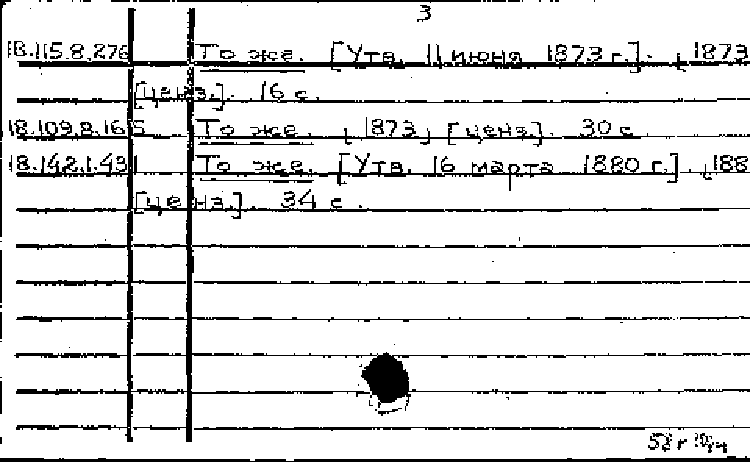 3
18.115.8.276 То же. [Утв. 11 июня 1873 г.]. 1873
[ценз.]. 16 с.
18.109.8.165 То же. 1873, [ценз.]. 30 с.
18.142.1.491 То же. [Утв. 16 марта 1880 г.]. 188
[ценз.]. 34 с.